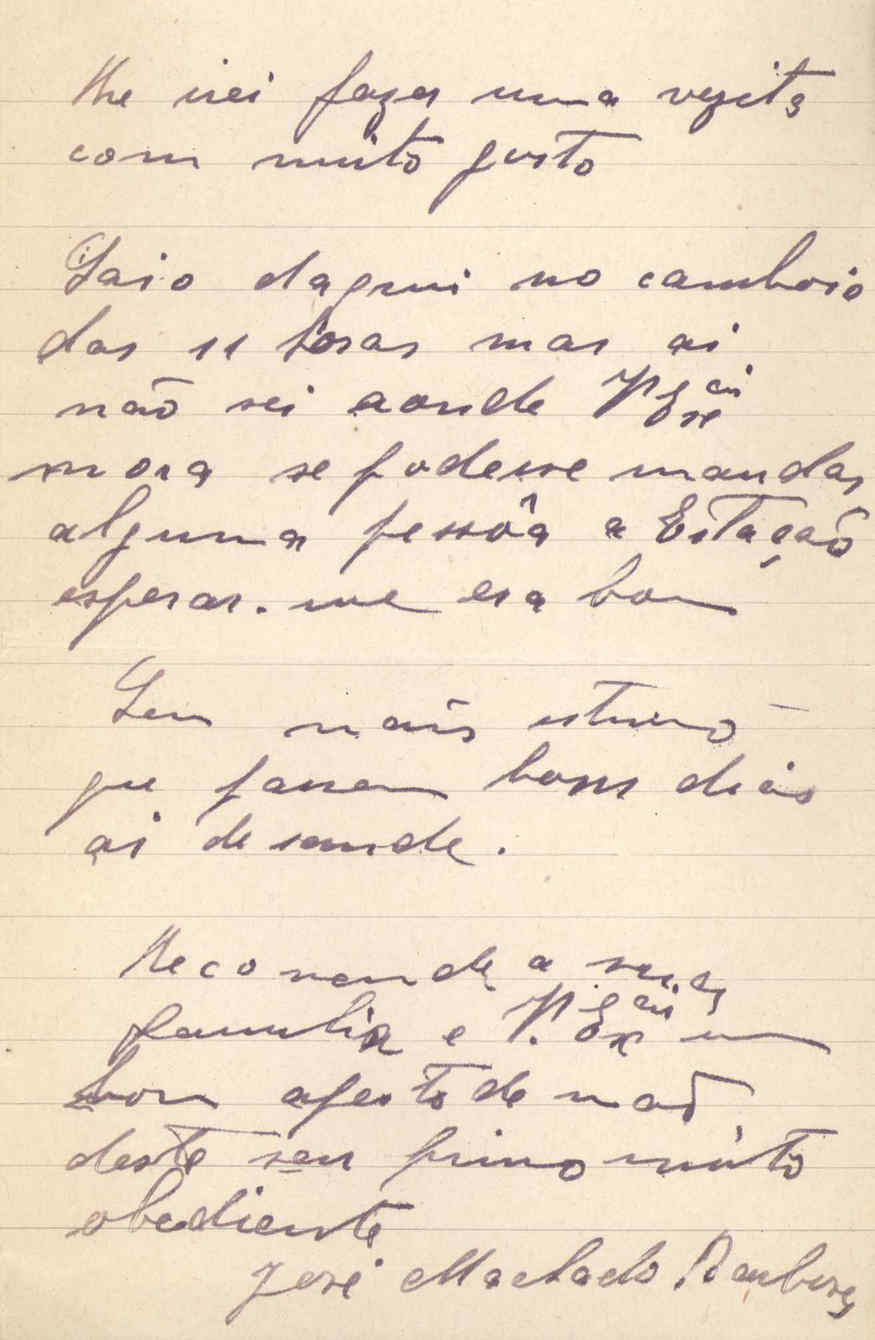 lhe irei fazer uma vezita
com muito gusto
Saio daqui no camboio
das 11 horas mas ai
não sei aonde V. Excia
mora se podesse mandar
alguma pessôa a Estação
esperar-me era bom
Sem mais estimo
que passem bons dias
ai de saude.
Recomende a sua
familia e V. Excia um
bom aperto de mão
deste seu primo muito
obediente
José Machado